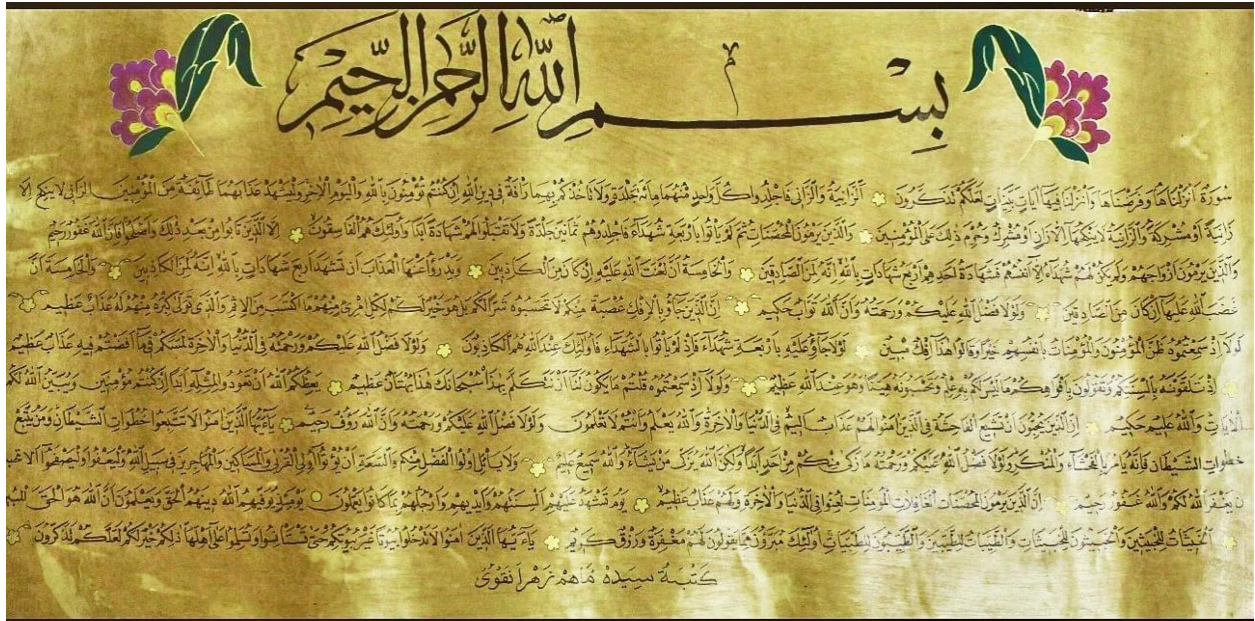 بِسْمِ اللّٰهِ الرَّحْمٰنِ الرَّحِيْمِ
سُورَةٌ اَنْزَلْنَاهَا وَفَرَضْنَاهَا وَاَنْزَلْنَا فِيهَا آيَاتٍ بَيِّنَاتٍ لَعَلَّكُمْ تَذَكَّرُونَ اَلزَّانِيَةُ وَالزَّانِي فَاجْلِدُوا كُلَّ وَاحِدٍ مِنْهُمَا مِائَةَ جَلْدَةٍ وَلَا تَأْخُذْكُمْ بِهِمَا رَأْفَةٌ فِي دِينِ اللّٰهِ اِنْ كُنْتُمْ تُؤْمِنُونَ بِاللّٰهِ وَالْيَوْمِ الْاٰخِرِ وَلْيَشْهَدْ عَذَابَهُمَا طَائِفَةٌ مِنَ الْمُؤْمِنِينَ الزَّانِي لَا يَنْكِحُ اِلَّا
زَانِيَةً اَوْ مُشْرِكَةً وَالزَّانِيَةُ لَا يَنْكِحُهَا اِلَّا زَانٍ اَوْ مُشْرِكٌ وَحُرِّمَ ذٰلِكَ عَلَى الْمُؤْمِنِينَ وَالَّذِينَ يَرْمُونَ الْمُحْصَنَاتِ ثُمَّ لَمْ يَأْتُوا بِاَرْبَعَةِ شُهَدَاءَ فَاجْلِدُوهُمْ ثَمَانِينَ جَلْدَةً وَلَا تَقْبَلُوا لَهُمْ شَهَادَةً اَبَدًا وَاُولٰئِكَ هُمُ الْفَاسِقُونَ اِلَّا الَّذِينَ تَابُوا مِنْ بَعْدِ ذٰلِكَ وَاَصْلَحُوا فَاِنَّ اللّٰهَ غَفُورٌ رَحِيمٌ
وَالَّذِينَ يَرْمُونَ اَزْوَاجَهُمْ وَلَمْ يَكُنْ لَهُمْ شُهَدَاءُ اِلَّا اَنْفُسُهُمْ فَشَهَادَةُ اَحَدِهِمْ اَرْبَعُ شَهَادَاتٍ بِاللّٰهِ اِنَّهُ لَمِنَ الصَّادِقِينَ وَالْخَامِسَةُ اَنَّ لَعْنَتَ اللّٰهِ عَلَيْهِ اِنْ كَانَ مِنَ الْكَاذِبِينَ وَيَدْرَؤُا عَنْهَا الْعَذَابَ اَنْ تَشْهَدَ اَرْبَعَ شَهَادَاتٍ بِاللّٰهِ اِنَّهُ لَمِنَ الْكَاذِبِينَ وَالْخَامِسَةَ اَنَّ
غَضَبَ اللّٰهِ عَلَيْهَا اِنْ كَانَ مِنَ الصَّادِقِينَ وَلَوْلَا فَضْلُ اللّٰهِ عَلَيْكُمْ وَرَحْمَتُهُ وَاَنَّ اللّٰهَ تَوَّابٌ حَكِيمٌ اِنَّ الَّذِينَ جَاؤُ بِالْاِفْكِ عُصْبَةٌ مِنْكُمْ لَا تَحْسَبُوهُ شَرًّا لَكُمْ بَلْ هُوَ خَيْرٌ لَكُمْ لِكُلِّ امْرِئٍ مِنْهُمْ مَا اكْتَسَبَ مِنَ الْاِثْمِ وَالَّذِي تَوَلّٰى كِبْرَهُ مِنْهُمْ لَهُ عَذَابٌ عَظِيمٌ
لَوْلَا اِذْ سَمِعْتُمُوهُ ظَنَّ الْمُؤْمِنُونَ وَالْمُؤْمِنَاتُ بِاَنْفُسِهِمْ خَيْرًا وَقَالُوا هٰذَا اِفْكٌ مُبِينٌ لَوْلَا جَاؤُ عَلَيْهِ بِاَرْبَعَةِ شُهَدَاءَ فَاِذْ لَمْ يَأْتُوا بِالشُّهَدَاءِ فَاُولٰئِكَ عِنْدَ اللّٰهِ هُمُ الْكَاذِبُونَ وَلَوْلَا فَضْلُ اللّٰهِ عَلَيْكُمْ وَرَحْمَتُهُ فِي الدُّنْيَا وَالْاٰخِرَةِ لَمَسَّكُمْ فِي مَا اَفَضْتُمْ فِيهِ عَذَابٌ عَظِيمٌ
اِذْ تَلَقَّوْنَهُ بِاَلْسِنَتِكُمْ وَتَقُولُونَ بِاَفْوَاهِكُمْ مَا لَيْسَ لَكُمْ بِهِ عِلْمٌ وَتَحْسَبُونَهُ هَيِّنًا وَهُوَ عِنْدَ اللّٰهِ عَظِيمٌ وَلَوْلَا اِذْ سَمِعْتُمُوهُ قُلْتُمْ مَا يَكُونُ لَنَا اَنْ نَتَكَلَّمَ بِهٰذَا سُبْحَانَكَ هٰذَا بُهْتَانٌ عَظِيمٌ يَعِظُكُمُ اللّٰهُ اَنْ تَعُودُوا لِمِثْلِهِ اَبَدًا اِنْ كُنْتُمْ مُؤْمِنِينَ وَيُبَيِّنُ اللّٰهُ لَكُمُ
الْاٰيَاتِ وَاللّٰهُ عَلِيمٌ حَكِيمٌ اِنَّ الَّذِينَ يُحِبُّونَ اَنْ تَشِيعَ الْفَاحِشَةُ فِي الَّذِينَ اٰمَنُوا لَهُمْ عَذَابٌ اَلِيمٌ فِي الدُّنْيَا وَالْاٰخِرَةِ وَاللّٰهُ يَعْلَمُ وَاَنْتُمْ لَا تَعْلَمُونَ وَلَوْلَا فَضْلُ اللّٰهِ عَلَيْكُمْ وَرَحْمَتُهُ وَاَنَّ اللّٰهَ رَؤُفٌ رَحِيمٌ يٰاَيُّهَا الَّذِينَ اٰمَنُوا لَا تَتَّبِعُوا خُطُوَاتِ الشَّيْطَانِ وَمَنْ يَتَّبِعْ
خُطُوَاتِ الشَّيْطَانِ فَاِنَّهُ يَأْمُرُ بِالْفَحْشَاءِ وَالْمُنْكَرِ وَلَوْلَا فَضْلُ اللّٰهِ عَلَيْكُمْ وَرَحْمَتُهُ مَا زَكٰى مِنْكُمْ مِنْ اَحَدٍ اَبَدًا وَلٰكِنَّ اللّٰهَ يُزَكِّي مَنْ يَشَاءُ وَاللّٰهُ سَمِيعٌ عَلِيمٌ وَلَا يَأْتَلِ اُولُوا الْفَضْلِ مِنْكُمْ وَالسَّعَةِ اَنْ يُؤْتُوا اُولِي الْقُرْبٰى وَالْمَسَاكِينَ وَالْمُهَاجِرِينَ فِي سَبِيلِ اللّٰهِ وَلْيَعْفُوا وَلْيَصْفَحُوا اَلَا تُحِبُّو
نَ اَنْ يَغْفِرَ اللّٰهُ لَكُمْ وَاللّٰهُ غَفُورٌ رَحِيمٌ اِنَّ الَّذِينَ يَرْمُونَ الْمُحْصَنَاتِ الْغَافِلَاتِ الْمُؤْمِنَاتِ لُعِنُوا فِي الدُّنْيَا وَالْاٰخِرَةِ وَلَهُمْ عَذَابٌ عَظِيمٌ يَوْمَ تَشْهَدُ عَلَيْهِمْ اَلْسِنَتُهُمْ وَاَيْدِيهِمْ وَاَرْجُلُهُمْ بِمَا كَانُوا يَعْمَلُونَ يَوْمَئِذٍ يُوَفِّيهِمُ اللّٰهُ دِينَهُمُ الْحَقَّ وَيَعْلَمُونَ اَنَّ اللّٰهَ هُوَ الْحَقُّ الْمُبِينُ
اَلْخَبِيثَاتُ لِلْخَبِيثِينَ وَالْخَبِيثُونَ لِلْخَبِيثَاتِ وَالطَّيِّبَاتُ لِلطَّيِّبِينَ وَالطَّيِّبُونَ لِلطَّيِّبَاتِ اُولٰئِكَ مُبَرَّؤُنَ مِمَّا يَقُولُونَ لَهُمْ مَغْفِرَةٌ وَرِزْقٌ كَرِيمٌ يٰاَيُّهَا الَّذِينَ اٰمَنُوا لَا تَدْخُلُوا بُيُوتًا غَيْرَ بُيُوتِكُمْ حَتّٰى تَسْتَأْنِسُوا وَتُسَلِّمُوا عَلٰى اَهْلِهَا ذٰلِكُمْ خَيْرٌ لَكُمْ لَعَلَّكُمْ تَذَكَّرُونَ
كَتَبَهُ سيده ماهم زهرا نقوى